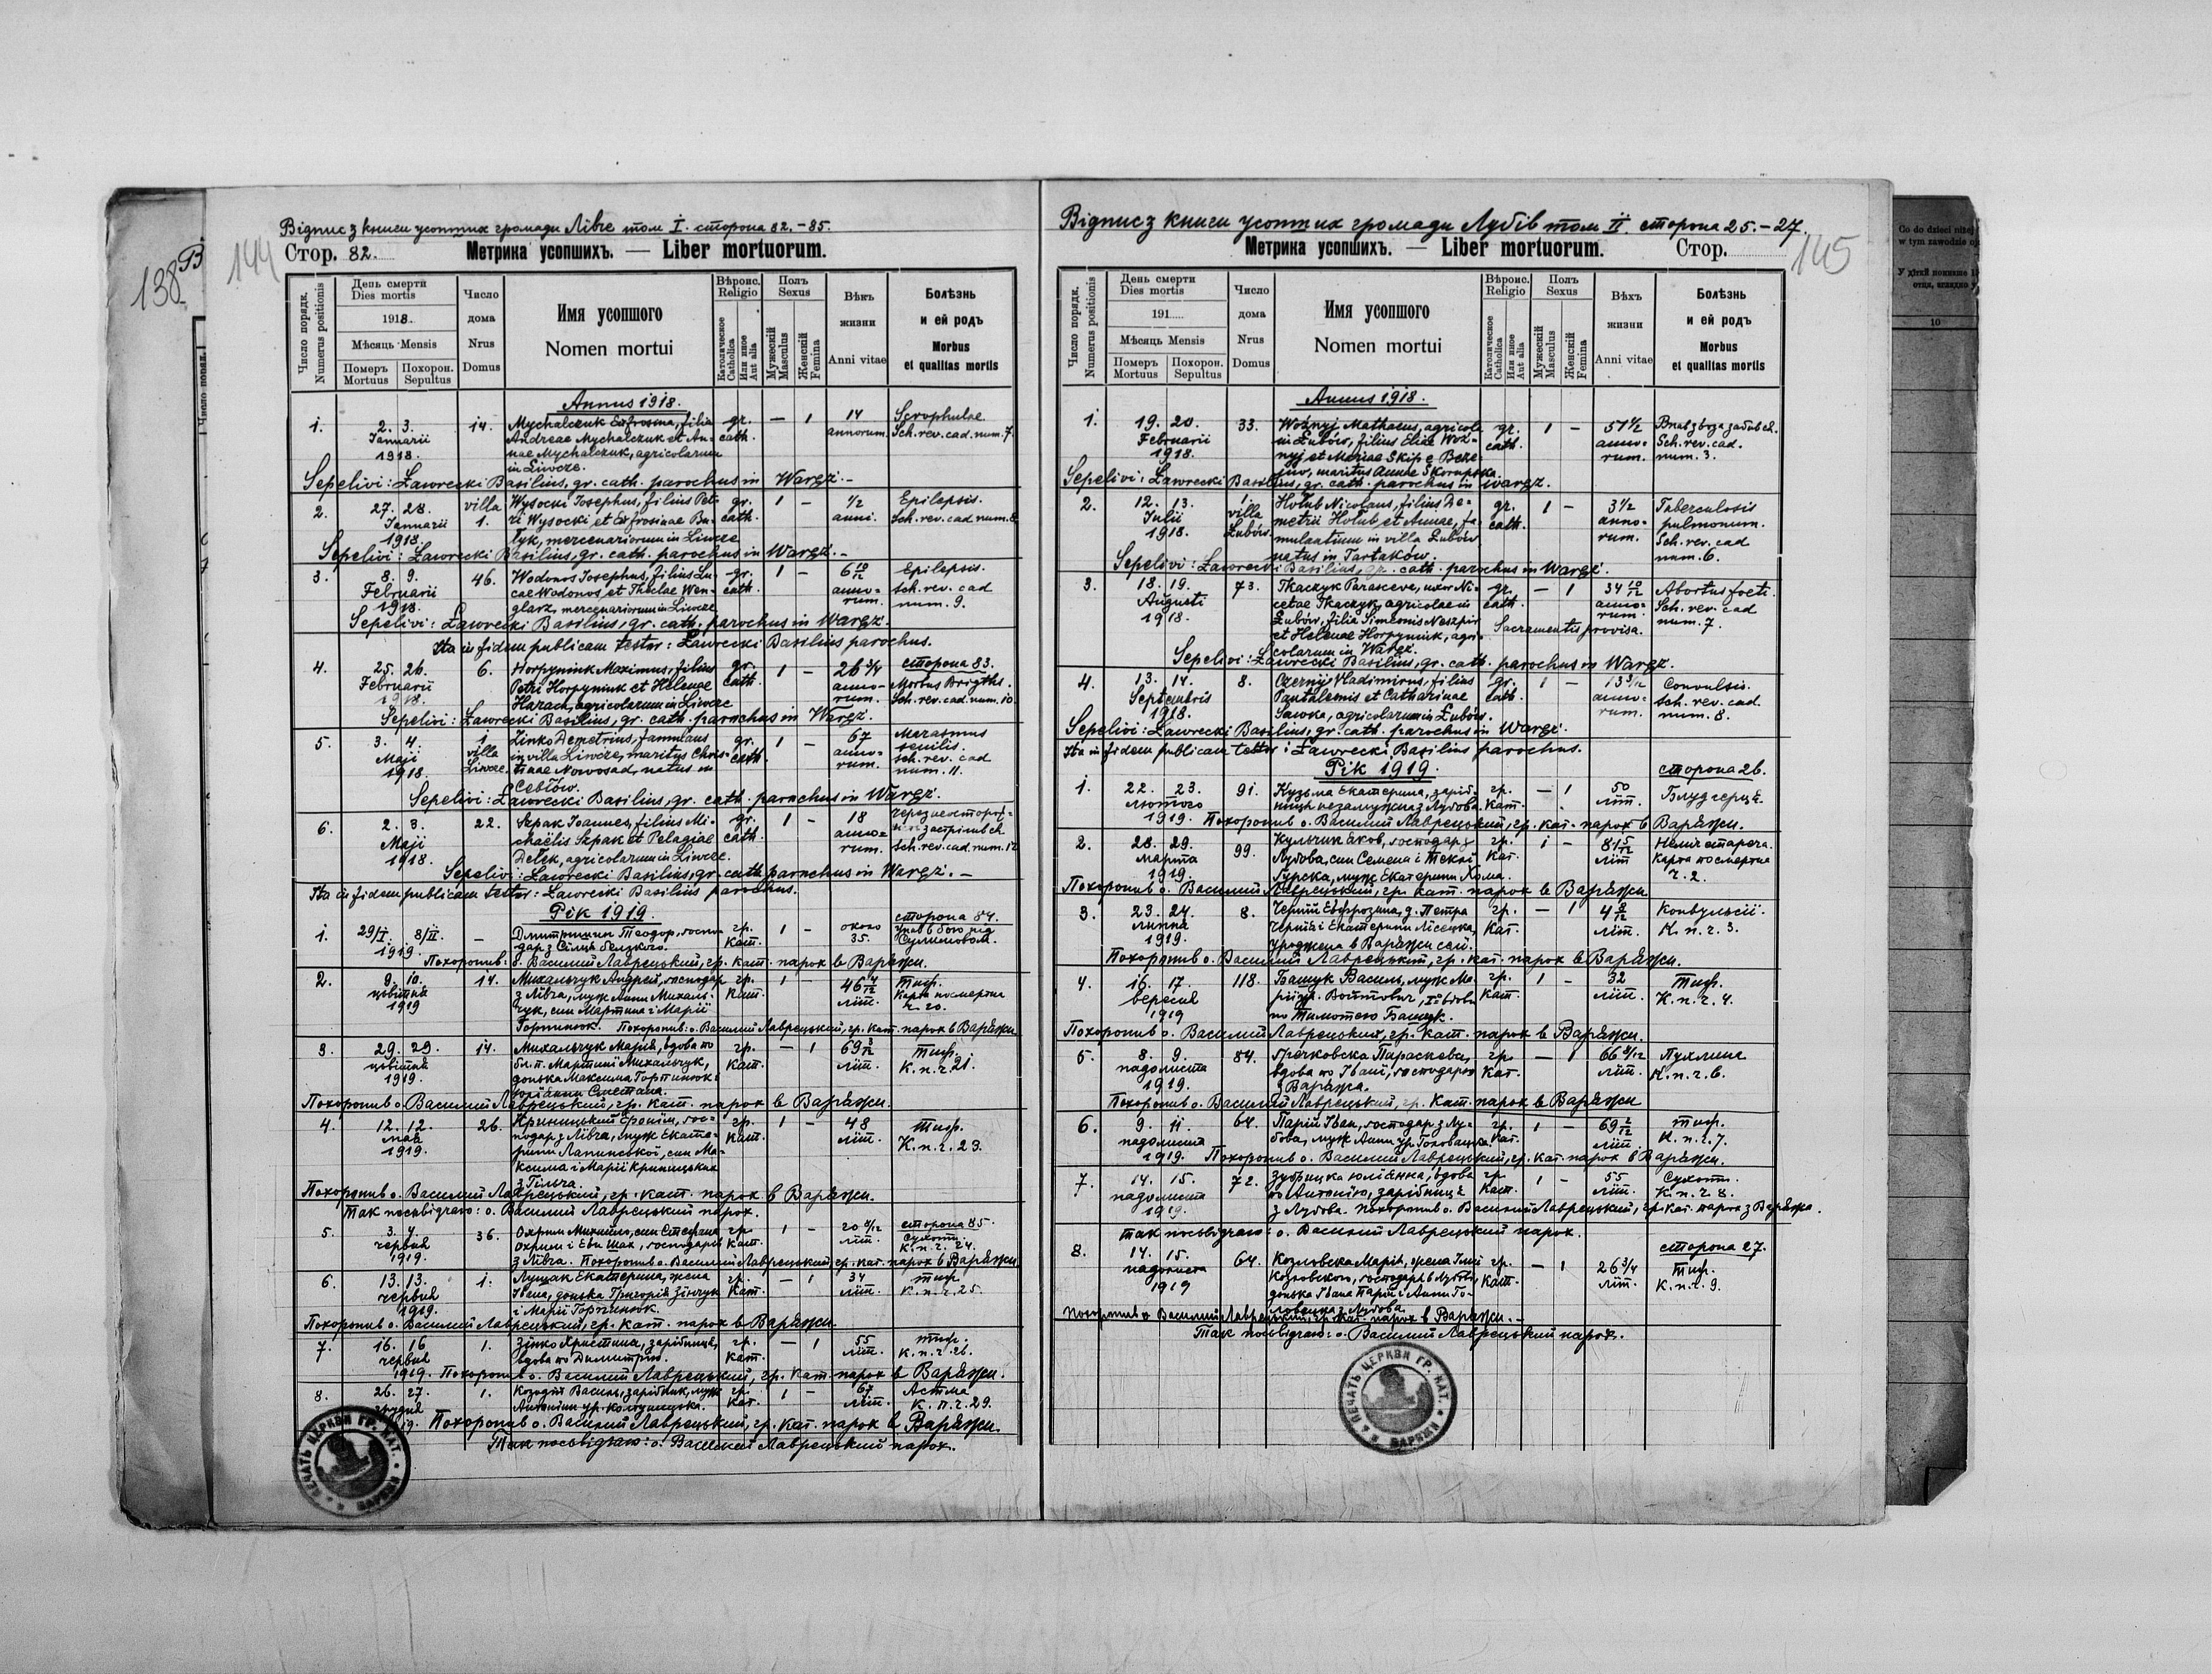 Відпис з книги усопших громади Лівче том I. сторона 82.-85.
Стор. 82. Метрика усопшихъ. — Liber mortuorum.
144
138
В
Число порядк.
Numerus positionis
День смерти
Dies mortis
1918.
Мѣсяць Mensis
Померъ
Mortuus
Похорон.
Sepultus
Число
дома
Nrus
Domus
Имя усопшого
Nomen mortui
Вѣроис.
Religio
Католическое
Catholica
Или иное
Aut alia
Полъ
Sexus
Мужескій
Masculus
Женскій
Femina
Вѣкъ
жизни
Anni vitae
Болѣзнь
и ей родъ
Morbus
et qualitas mortis
Annus 1918.
1. 2. 3. 14. Mychalczuk Eufrosina, filia gr. — 1 14 Scrophulae
Januarii Andreae Mychalczuk et An- cath. annorum. Sch. rev. cad. num. 7.
1918. nae Mychalczuk, agricolarum
in Liwcze.
Sepelivi: Ławrecki Basilius, gr. cath. parochus in Waręż.-
2. 27. 28. villa Wysocki Josephus, filius Pet- gr. 1 — 1/2 Epilepsis.
Januarii 1. ri Wysocki et Eufrosinae Bu- cath. anni. Sch. rev. cad. num. 8.
1918. łyk, mercenariorum in Liwcze
Sepelivi: Ławrecki Basilius, gr. cath. parochus in Waręż.-
3. 8. 9. 46. Wodonos Josephus, filius Lu- gr. 1 — 6 10/12 Epilepsis.
Februarii cae Wodonos et Theclae Wen- cath. anno- sch. rev. cad
1918. glarz, mercenariorum in Liwcze rum. num. 9.
Sepelivi: Ławrecki Basilius, gr. cath. parochus in Waręż.
Ita in fidem publicam testor: Ławrecki Basilius parochus.
4. 25. 26. 6. Horpyniuk Maximus, filius gr. 1 — 26 3/4 сторона 83.
Februarii Petri Horpyniuk et Helenae cath. anno- Morbus Brigths.
1918. Harach, agricolarum in Liwcze rum. Sch. rev. cad. num. 10
Sepelivi: Ławrecki Basilius, gr. cath. parochus in Waręż.
5. 3. 4. 1 Zinko Demetrius, famulans gr. 1 — 67 Marasmus
Maji villa in villa Liwcze, maritus Chris- cath. anno- senilis.
1918. Liwcze. tinae Nowosad, natus in rum. sch. rev. cad
Cebłów. num. 11.
Sepelivi: Ławrecki Basilius, gr. cath. parochus in Waręż.
6. 2. 3. 22. Szpak Joannes, filius Mi- gr. 1 — 18
Maji chaëlis Szpak et Pelagiae cath. anno- застрілив ся.
1918. Dełek, agricolarum in Liwcze. rum. sch. rev. cad. num. 12
Sepelivi: Ławrecki Basilius, gr. cath. parochus in Waręż.-
Ita in fidem publicam testor: Ławrecki Basilius parochus.
Рік 1919. сторона 84.
1. 29/I. 8/II. — Дмитришин Теодор, госпо- гр. 1 — около упав в бою під
1919. дар з Сільця белзкого. кат. 35. Сулимовом.
Похоронив: о. Василий Лаврецький, гр. кат. парох в Варяжи.
2. 9. 10. 14. Михальчук Андрій, господар гр. 1 — 46 4/12 Тиф.
цвітня з Лівча, муж Анни Михаль- кат. літ. Карта посмертна
1919 чук, син Мартина і Марії ч. 20.
Горпинюк. Похоронив: о. Василий Лаврецький, гр. кат. парох в Варяжи.
3. 29. 29. 14. Михальчук Марія, вдова по гр. — 1 69 3/12 Тиф.
цвітня бл. п. Мартині Михальчук, кат. літ. К. п. ч 21.
1919. донька Максима Горпинюк і
Юліанни Сметана.
Похоронив о. Василий Лаврецький, гр. кат. парох в Варяжи.
4. 12. 12. 26. Криницький Єронім, гос- гр. 1 — 48 Тиф.
мая подар з Лівча, муж Екате- кат. літ. К. п. ч. 23.
1919. рини Лапинської, син Ма-
ксима і Марії Криницьких
з Тільча.
Похоронив о. Василий Лаврецький, гр. кат. парох в Варяжи.
Так посьвідчаю: о. Василий Лаврецький парох.
5. 3. 4. 36. Охрим Михайло, син Стефана гр. 1 — 20 4/12 сторона 85.
червня Охрим і Еви Шах, господарів кат. літ. Сухоти. К. п. ч. 24.
1919. з Лівча. Похоронив о. Василий Лаврецький гр. кат. парох в Варяжи
6. 13. 13. 1. Лущак Екатерина, жена гр. — 1 34 тиф.
червня Івана, донька Григорія Зінчук кат. літ. к. п. ч. 25.
1919. і Марії Горпинюк.
Похоронив о. Василий Лаврецький, гр. кат. парох в Варяжи.
7. 16. 16 1. Зінко Христина, зарібниця, гр. — 1 55 тиф.
червня вдова по Димитрію. кат. літ. к. п. ч. 26.
1919. Похоронив о. Василий Лаврецький, гр. кат. парох в Варяжи.
8. 26. 27. 1. Козодій Василь, зарібник, муж гр. 1 — 67 Астма
грудня Антонини ур. Колтуницька. кат. літ. К. п. ч. 29.
Похоронив о. Василий Лаврецький, гр. кат. парох в Варяжи.
Так посьвідчаю: о. Василий Лаврецький парох.
ПЕЧАТЬ ЦЕРКВИ ГР. КАТ. В ВАРЯЖИ
Відпис з книги усопших громади Лубів том II. сторона 25.-27.
Метрика усопшихъ. — Liber mortuorum. Стор.
145
Число порядк.
Numerus positionis
День смерти
Dies mortis
191
Мѣсяць Mensis
Померъ
Mortuus
Похорон.
Sepultus
Число
дома
Nrus
Domus
Имя усопшого
Nomen mortui
Вѣроис.
Religio
Католическое
Catholica
Или иное
Aut alia
Полъ
Sexus
Мужескій
Masculus
Женскій
Femina
Вѣкъ
жизни
Anni vitae
Болѣзнь
и ей родъ
Morbus
et qualitas mortis
Annus 1918.
1. 19. 20. 33. Woźnyj Mathaeus, agricola gr. 1 — 51 1/2 Впав з воза забив ся.
Februarii in Łubów, filius Eliae Woź- cath. anno- Sch. rev. cad.
1918. nyj et Mariae Skip e Beze- rum. num. 3.
jów, maritus Annae Skorupska.
Sepelivi: Ławrecki Basilius, gr. cath. parochus in Waręż.
2. 12. 13. 1 Hołub Nicolaus, filius De- gr. 1 — 3 1/2 Tuberculosis
Julii villa metrii Hołub et Annae, fa- cath. anno- pulmonum.
1918. Łubów. mulantium in villa Łubów, rum. Sch. rev. cad
natus in Tartaków. num. 6.
Sepelivi: Ławrecki Basilius, gr. cath. parochus in Waręż.
3. 18. 19. 73. Tkaczyk Parasceve, uxor Ni- gr. — 1 34 10/12 Abortus foeti.
Augusti cetae Tkaczyk, agricolae in cath. anno- Sch. rev. cad
1918. Łubów, filia Simeonis Neszpir rum. num. 7.
et Helenae Horpyniuk, agri- Sacramentis provisa.
colarum in Waręż.
Sepelivi: Ławrecki Basilius, gr. cath. parochus in Waręż.
4. 13. 14. 8. Czernij Vladimirus, filius gr. 1 — 13 3/12 Convulsis.
Septembris Pantalemis et Catharinae cath. anno- sch. rev. cad.
1918. Sawka, agricolarum in Łubów. rum. num. 8.
Sepelivi: Ławrecki Basilius, gr. cath. parochus in Waręż.
Ita in fidem publicam testor: Ławrecki Basilius parochus.
Рік 1919. сторона 26.
1. 22. 23. 91. Кузьма Екатерина, заріб- гр. — 1 50 Блуд серця.
лютого ниця незамужна з Лубова. кат. літ.
1919. Похоронив о. Василий Лаврецький, гр. кат. парох в Варяжи.
2. 28. 29. 99. Кульчик Яков, господар з гр. 1 — 81 5/12 Неміч стареча.
марта Лубова, син Семена і Теклі кат. літ Карта посмертна
1919. Гурска, муж Екатерини Хома. ч. 2.
Похоронив о. Василий Лаврецький, гр. кат. парох в Варяжи
3. 23. 24. 8. Черній Евфрозина, д. Петра гр. — 1 4 8/12 Конвульсії.
липня Черній і Екатерини Лісецка, кат. літ. К. п. ч. 3.
1919. уроджена в Варяжи селі.
Похоронив о. Василий Лаврецький, гр. кат. парох в Варяжи.
4. 16. 17 118. Башук Василь, муж Ма- гр. 1 — 32 Тиф.
вересня рії ур. Войтович, кат. літ. К. п. ч. 4.
1919 по Тимотею Башук.
Похоронив о. Василий Лаврецький, гр. кат. парох в Варяжи.
5. 8. 9. 84. Гречковска Параскева, гр. — 1 66 8/12 Пухлина
падолиста вдова по Івані, господарю кат. літ. К. п. ч. 6.
1919. з Варяжа.
Похоронив о. Василий Лаврецький, гр. кат. парох в Варяжи
6. 9. 11. 64. Парій Іван, господар з Лу- гр. 1 — 69 2/12 тиф.
падолиста бова, муж Анни ур. Головацка. кат. літ. К. п. ч. 7.
1919. Похоронив о. Василий Лаврецький, гр. кат. парох в Варяжи.
7. 14. 15. 72. Зубрицка Юліянна, вдова гр. 1 — 55 Сухоти.
падолиста по Антонію, зарібниця кат. літ. К. п. ч 8.
1919. з Лубова. Похоронив о. Василий Лаврецький, гр. кат. парох з Варяжа.
Так посьвідчаю: о. Василий Лаврецький парох.
8. 14. 15. 64. Козловска Марія, жена Ілії гр. — 1 26 3/4 сторона 27.
падолиста Козловского, господаря в Лубові, кат. літ. Тиф.
1919 донька Івана Парій і Анни Го- К. п. ч. 9.
ловацка з Лубова.
Похоронив о. Василий Лаврецький, гр. кат. парох в Варяжи.-
Так посьвідчаю: о. Василий Лаврецький парох.
ПЕЧАТЬ ЦЕРКВИ ГР. КАТ. В ВАРЯЖИ
Co do dzieci niżej
w tym zawodzie
10